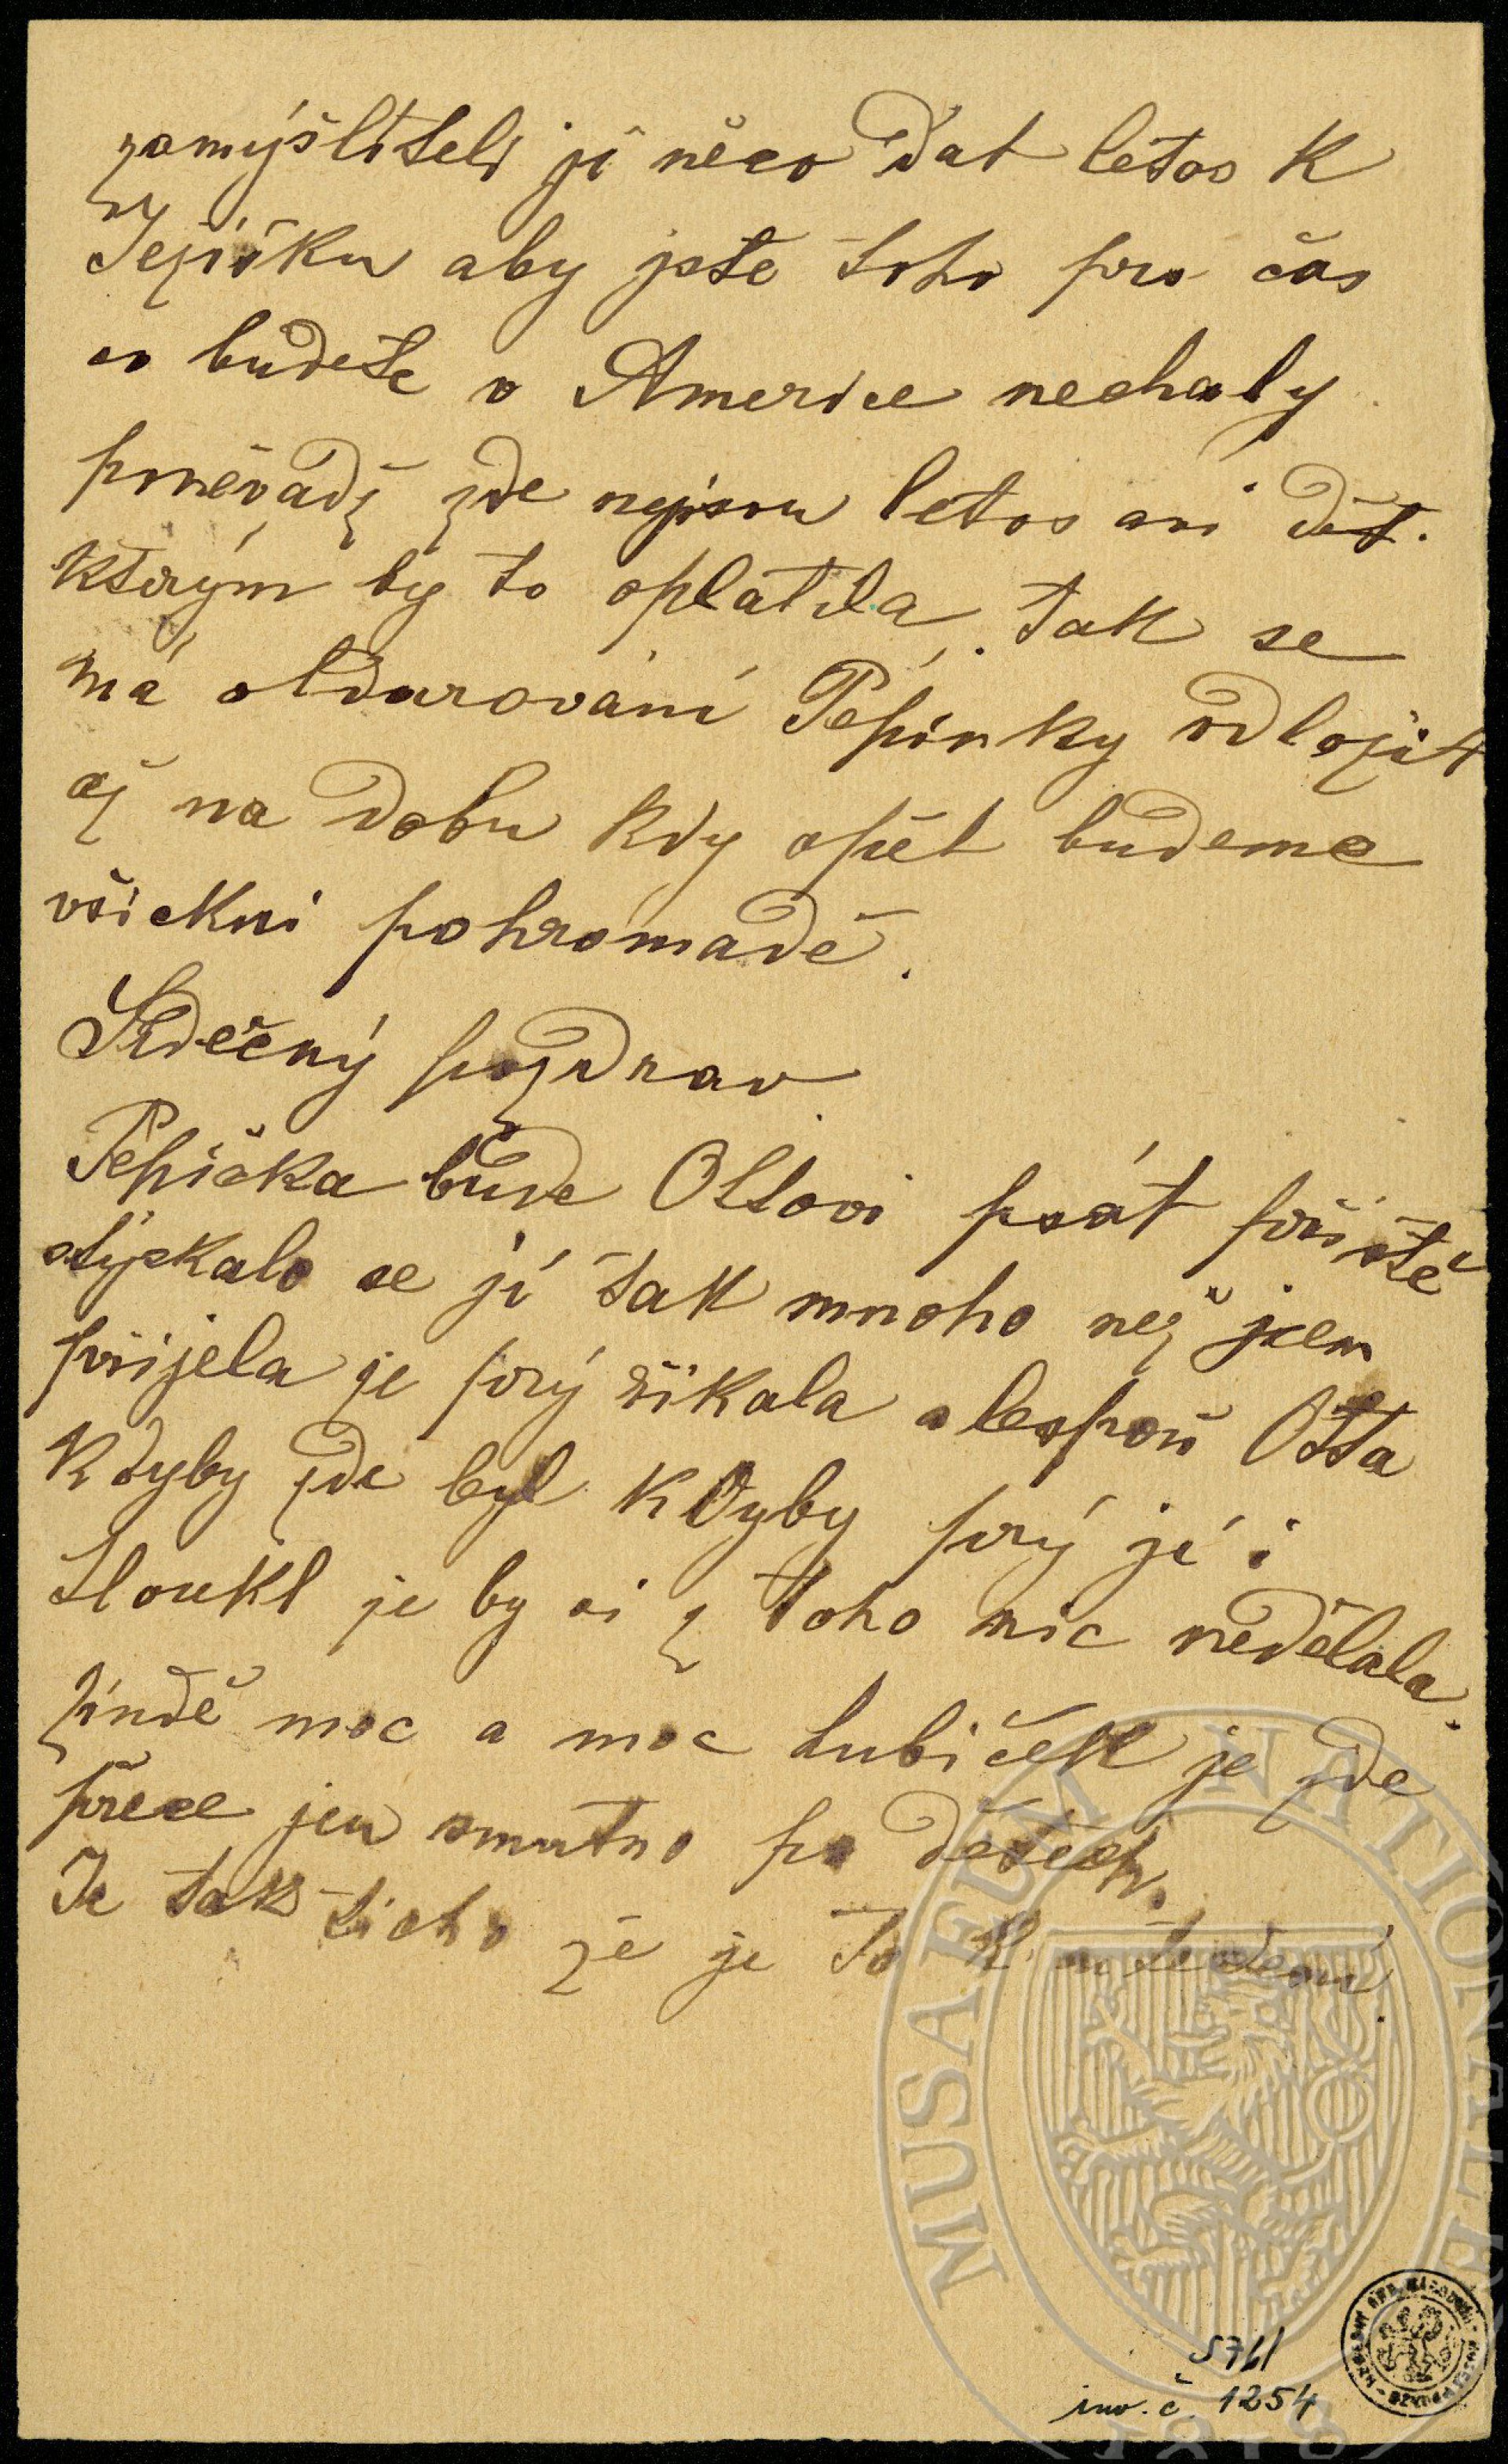 zamýšliteli jí něco dat letos k
Ježíšku aby jste toho pro čas
co budete v Americe nechaly
poněvádž zde nejsou letos ani dět.
kterým by to oplatila, tak se
má obdarováni Pepinky odložit
až na dobu kdy opět budeme
všickni pohromadě.
Srdečný pozdrav
Pepička bude Ottovi psát příště
stýskalo se jí tak mnoho než jsem
přijela je prý řikala alespoň Otta
kdyby zde byl kdyby prý jí i
tloukl je by si z toho nic nedělala.
Jindě moc a moc hubiček je zde
přece jen smutno po dětech.
Je tak ticho že je to k
MUSAEUM NATIONALE
5761
inv. č. 1254